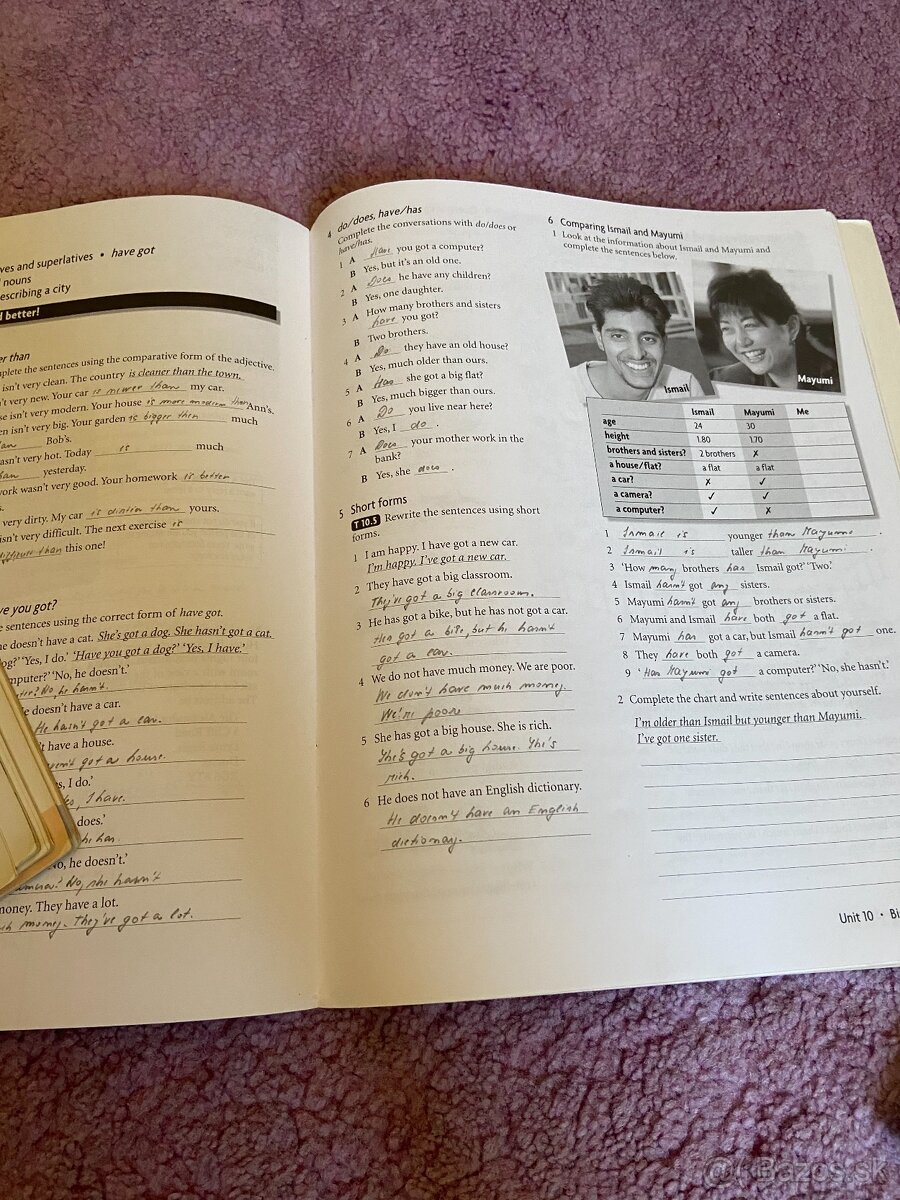 ves and superlatives • have got
nouns
escribing a city
better!
er than
plete the sentences using the comparative form of the adjective.
isn't very clean. The country is cleaner than the town.
't very new. Your car is newer than my car.
se isn't very modern. Your house is more modern than Ann's.
en isn't very big. Your garden is bigger then much
Bob's.
asn't very hot. Today is much
yesterday.
ork wasn't very good. Your homework is better
very dirty. My car is dirtier than yours.
isn't very difficult. The next exercise is
difficult than this one!
ve you got?
e sentences using the correct form of have got.
he doesn't have a cat. She's got a dog. She hasn't got a cat.
og?' 'Yes, I do.' 'Have you got a dog?' 'Yes, I have.'
mputer?' 'No, he doesn't.'
No he hasn't.
He doesn't have a car.
He hasn't got a car.
't have a house.
haven't got a house.
es, I do.'
I have.
does.'
he has
No, he doesn't.'
No, she hasn't
money. They have a lot.
money. They've got a lot.
4 do/does, have/has
Complete the conversations with do/does or
have/has.
1 A Have you got a computer?
B Yes, but it's an old one.
2 A Does he have any children?
B Yes, one daughter.
3 A How many brothers and sisters
have you got?
B Two brothers.
4 A Do they have an old house?
B Yes, much older than ours.
5 A Has she got a big flat?
B Yes, much bigger than ours.
6 A Do you live near here?
B Yes, I do.
7 A Does your mother work in the
bank?
B Yes, she does.
5 Short forms
T 10.5 Rewrite the sentences using short
forms.
1 I am happy. I have got a new car.
I'm happy. I've got a new car.
2 They have got a big classroom.
They've got a big classroom.
3 He has got a bike, but he has not got a car.
got a bike, but h hasn't
got a car.
4 We do not have much money. We are poor.
We don't have much money.
We're poor
5 She has got a big house. She is rich.
She's got a big house. She's
rich.
6 He does not have an English dictionary.
He doesn't have an English
dictionay.
6 Comparing Ismail and Mayumi
1 Look at the information about Ismail and Mayumi and
complete the sentences below.
Ismail
Mayumi
Ismail Mayumi Me
age 24 30
height 1.80 1.70
brothers and sisters? 2 brothers ✗
a house/flat? a flat a flat
a car? ✗ ✓
a camera? ✓ ✓
a computer? ✓ ✗
1 Ismail is younger than Mayumi.
2 Ismail is taller than Mayumi.
3 'How many brothers has Ismail got?' 'Two.'
4 Ismail hasn't got any sisters.
5 Mayumi hasn't got any brothers or sisters.
6 Mayumi and Ismail have both got a flat.
7 Mayumi has got a car, but Ismail hasn't got one.
8 They have both got a camera.
9 'Has Mayumi got a computer?' 'No, she hasn't.'
2 Complete the chart and write sentences about yourself.
I'm older than Ismail but younger than Mayumi.
I've got one sister.
Unit 10 • Bi
Bazos.sk